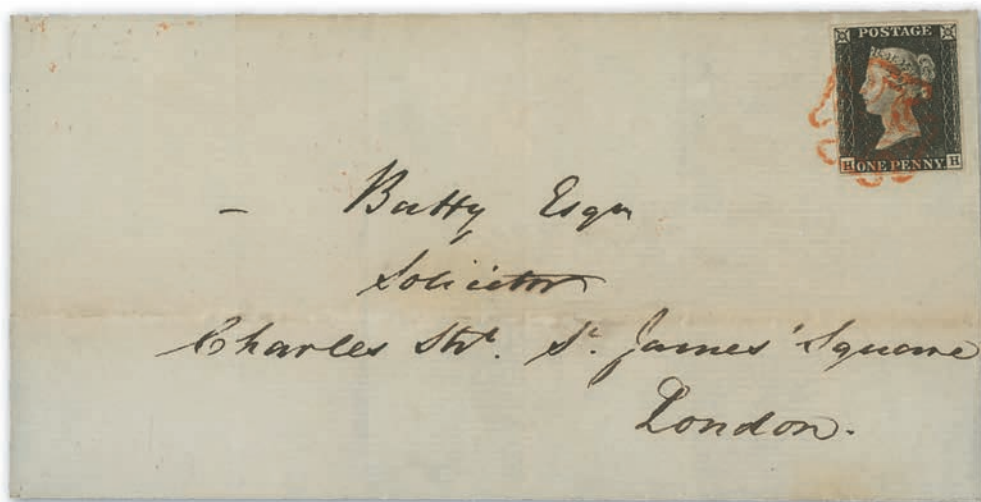 POSTAGE
H ONE PENNY H
– Batty Esqr
Solicitor
Charles Strt. St. James' Square
London.